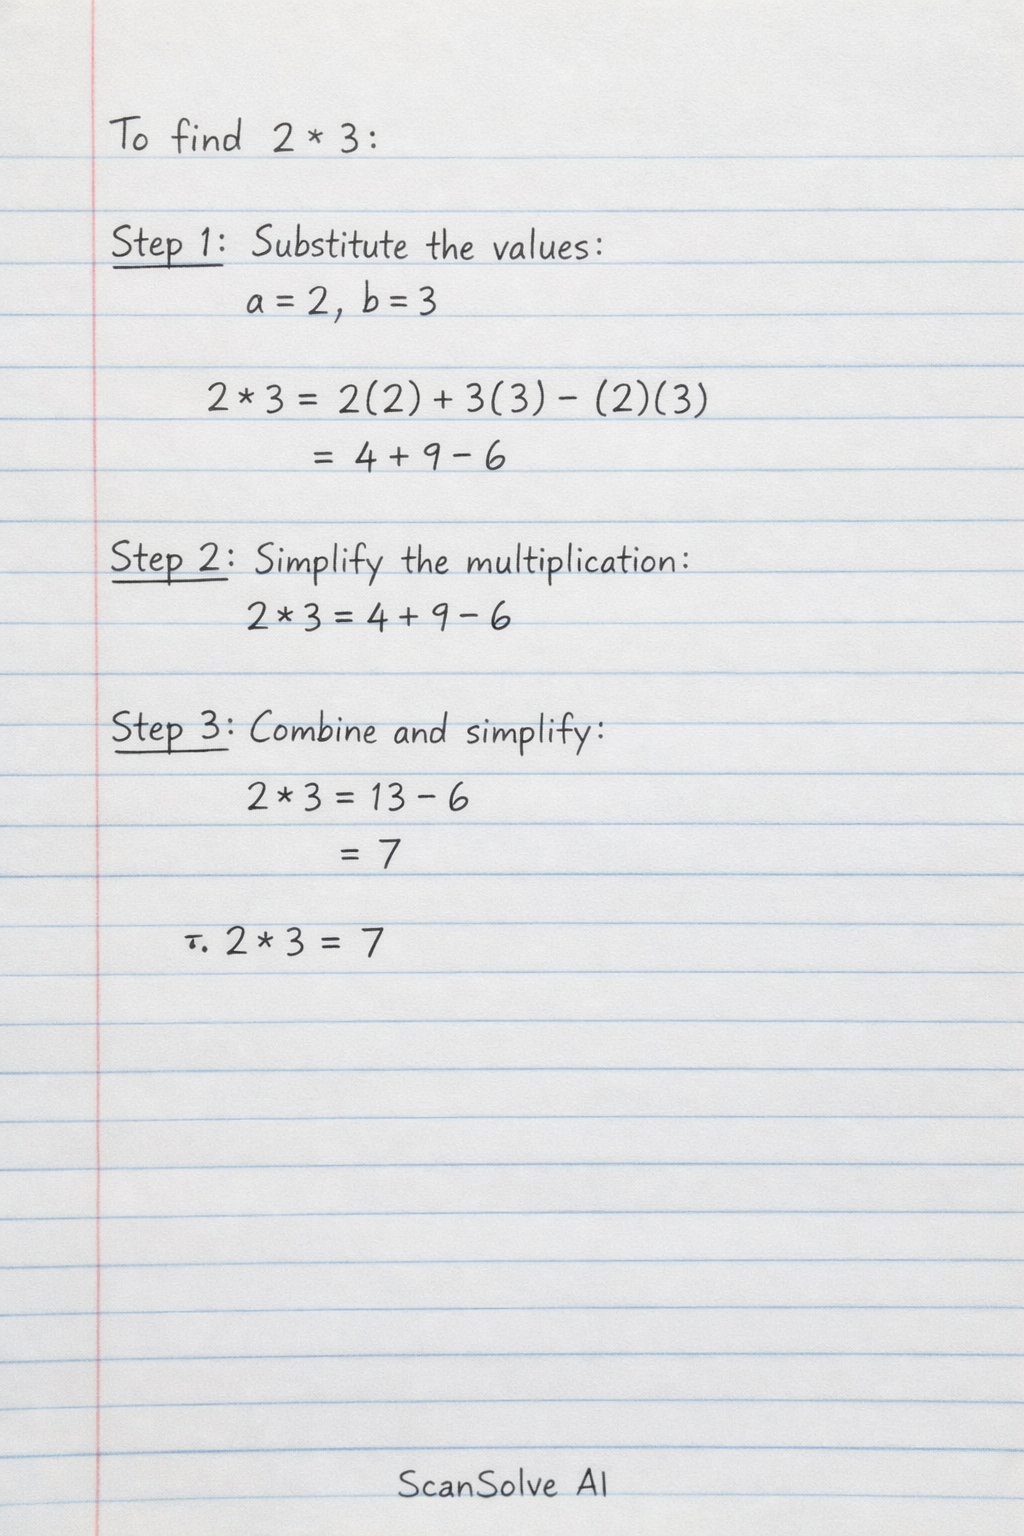 To find 2 * 3:
Step 1: Substitute the values:
a = 2, b = 3
2 * 3 = 2(2) + 3(3) - (2)(3)
= 4 + 9 - 6
Step 2: Simplify the multiplication:
2 * 3 = 4 + 9 - 6
Step 3: Combine and simplify:
2 * 3 = 13 - 6
= 7
τ. 2 * 3 = 7
ScanSolve AI